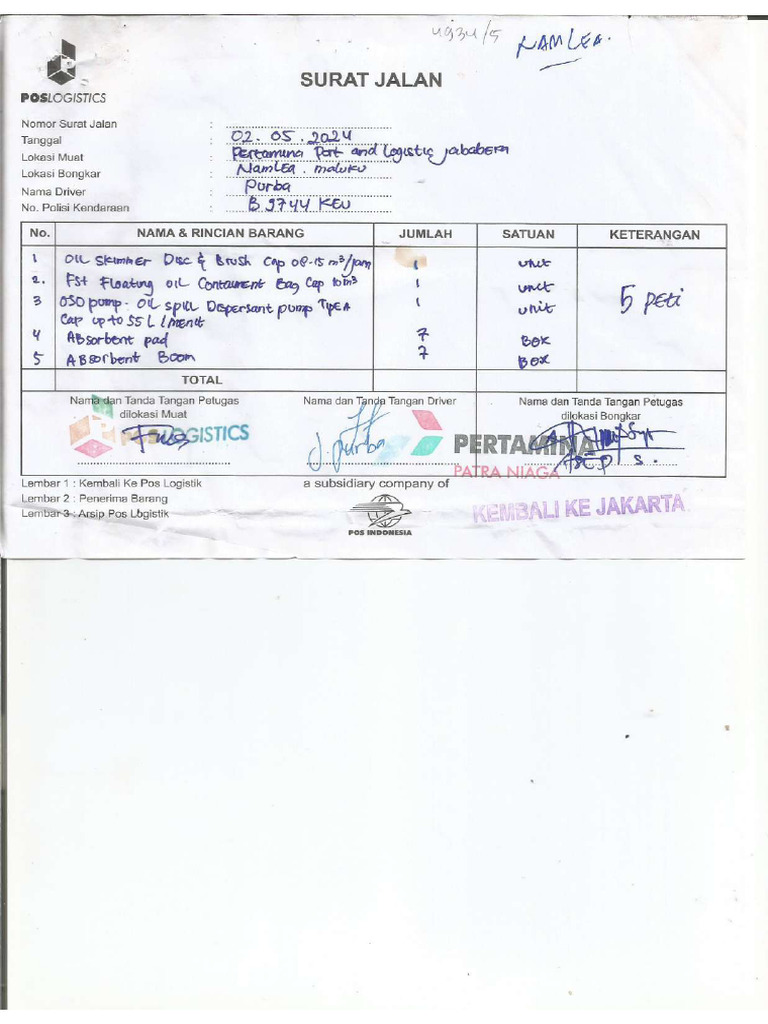 4934/5
NAMLEA.
POSLOGISTICS
SURAT JALAN
Nomor Surat Jalan :
Tanggal : 02.05.2024
Lokasi Muat : Pertamina Port and Logistic Jababeka
Lokasi Bongkar : NamLEA. maluku
Nama Driver : Purba
No. Polisi Kendaraan : B 9744 KEU
No. NAMA & RINCIAN BARANG JUMLAH SATUAN KETERANGAN
1 OIL Skimmer Disc & Brush Cap 08-15 m³/jam 1 unit
2. Fst Floating OIL Containent Bag Cap 10 m³ 1 unit
3 OSD pump. OIL Spill Dispersant pump Type A 1 unit
Cap up to 55 L/menit
4 Absorbent pad 7 BOX
5 Absorbent Boom 7 BOX
5 peti
TOTAL
Nama dan Tanda Tangan Petugas dilokasi Muat
Nama dan Tanda Tangan Driver
Nama dan Tanda Tangan Petugas dilokasi Bongkar
POSLOGISTICS
J. Purba
PERTAMINA
PATRA NIAGA
ASEP S.
Lembar 1 : Kembali Ke Pos Logistik
Lembar 2 : Penerima Barang
Lembar 3 : Arsip Pos Logistik
a subsidiary company of
POS INDONESIA
KEMBALI KE JAKARTA